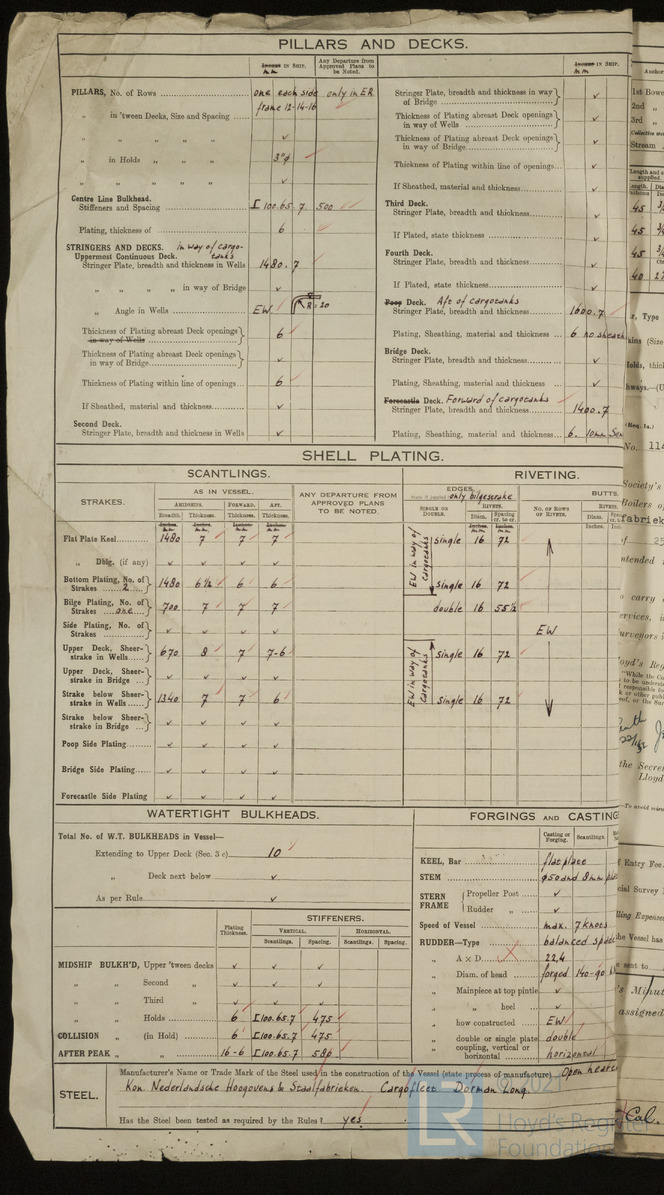 PILLARS AND DECKS.
Inches IN SHIP. mm
Any Departure from Approved Plans to be Noted.
PILLARS, No. of Rows one each side only in E.R.
frame 12-14-16
„ in 'tween Decks, Size and Spacing
„ „ „ „ „ ✓
„ in Holds „ 3"φ
„ „ „ „ „ ✓
Centre Line Bulkhead.
Stiffeners and Spacing I 100.65.7 500
Plating, thickness of 6
STRINGERS AND DECKS. in way of cargo-tanks
Uppermost Continuous Deck.
Stringer Plate, breadth and thickness in Wells 1480.7
„ „ „ „ in way of Bridge ✓
„ Angle in Wells EW R=20
Thickness of Plating abreast Deck openings in way of Wells 6
Thickness of Plating abreast Deck openings in way of Bridge ✓
Thickness of Plating within line of openings 6
If Sheathed, material and thickness ✓
Second Deck.
Stringer Plate, breadth and thickness in Wells ✓
Inches IN SHIP. mm
Stringer Plate, breadth and thickness in way of Bridge ✓
Thickness of Plating abreast Deck openings in way of Wells ✓
Thickness of Plating abreast Deck openings in way of Bridge ✓
Thickness of Plating within line of openings ✓
If Sheathed, material and thickness ✓
Third Deck.
Stringer Plate, breadth and thickness ✓
If Plated, state thickness ✓
Fourth Deck.
Stringer Plate, breadth and thickness ✓
If Plated, state thickness ✓
Poop Deck. Aft of cargotanks
Stringer Plate, breadth and thickness 1600.7
Plating, Sheathing, material and thickness 6 no sheath
Bridge Deck.
Stringer Plate, breadth and thickness ✓
Plating, Sheathing, material and thickness ✓
Forecastle Deck. Forward of cargotanks
Stringer Plate, breadth and thickness 1400.7
Plating, Sheathing, material and thickness 6.
SHELL PLATING.
SCANTLINGS.
RIVETING.
STRAKES.
AS IN VESSEL.
AMIDSHIPS. FORWARD. AFT.
Breadth. Thickness. Thickness. Thickness.
ANY DEPARTURE FROM APPROVED PLANS TO BE NOTED.
EDGES. only bilgestrake
SINGLE OR DOUBLE.
RIVETS.
Diam. Spacing cr. to cr.
BUTTS.
NO. OF ROWS OF RIVETS.
RIVETS.
Diam.
Flat Plate Keel 1480 7 7 7 single 16 72
„ Dblg. (if any) ✓ ✓ ✓ ✓
Bottom Plating, No. of Strakes 2 1480 6½ 6 6 single 16 72
EW in way of cargotanks
Bilge Plating, No. of Strakes one 700 7 7 7 double 16 55½
Side Plating, No. of Strakes ✓ ✓ ✓ ✓ EW
Upper Deck, Sheerstrake in Wells 670 8 7 7-6 single 16 72
EW in way of cargotanks
Upper Deck, Sheerstrake in Bridge ✓ ✓ ✓ ✓
Strake below Sheerstrake in Wells 1340 7 7 6 single 16 72
Strake below Sheerstrake in Bridge ✓ ✓ ✓ ✓
Poop Side Plating ✓ ✓ ✓ ✓
Bridge Side Plating ✓ ✓ ✓ ✓
Forecastle Side Plating ✓ ✓ ✓ ✓
WATERTIGHT BULKHEADS.
Total No. of W.T. BULKHEADS in Vessel—
Extending to Upper Deck (Sec. 3 c) 10
„ Deck next below ✓
As per Rule ✓
Plating Thickness.
STIFFENERS.
VERTICAL. HORIZONTAL.
Scantlings. Spacing. Scantlings. Spacing.
MIDSHIP BULKH'D, Upper 'tween decks ✓ ✓ ✓
„ „ Second „ ✓ ✓ ✓
„ „ Third „ ✓ ✓ ✓
„ „ Holds 6 I100.65.7 475
COLLISION „ (in Hold) 6 I100.65.7 475
AFTER PEAK „ „ 16-6 I100.65.7 586
FORGINGS AND CASTING
Casting or Forging. Scantlings.
KEEL, Bar flatplate
STEM φ50 and 8mm
STERN FRAME Propeller Post ✓
Rudder „ ✓
Speed of Vessel max. 7 knots
RUDDER—Type balanced
„ A x D 22,4
„ Diam. of head forged 140-90
„ Mainpiece at top pintle ✓
„ „ heel ✓
„ how constructed EW
„ double or single plate double
„ coupling, vertical or horizontal horizontal
STEEL.
Manufacturer's Name or Trade Mark of the Steel used in the construction of the Vessel (state process of manufacture) Open
Kon. Nederlandsche Hoogovens & Staalfabrieken. Cargofleet Dorman Long.
Has the Steel been tested as required by the Rules? yes
© 2021
LR
Lloyd's Register
Foundation